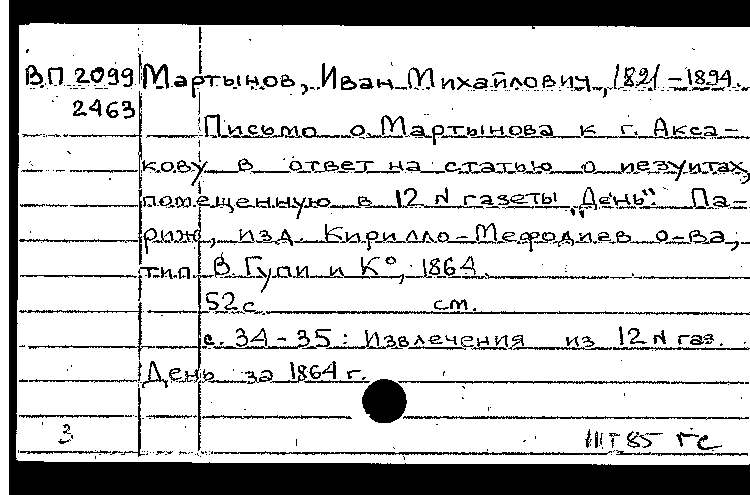 ВП 2099 Мартынов, Иван Михайлович, 1821-1894.
2463
Письмо о. Мартынова к г. Акса-
кову в ответ на статью о иезуитах,
помещенную в 12 N газеты „День". Па-
риж, изд. Кирилло-Мефодиев о-ва,
тип. В. Гупи и К°, 1864.
52 с. см.
с. 34-35: Извлечения из 12 N газ.
День за 1864 г.
3 ШТ 85 гс